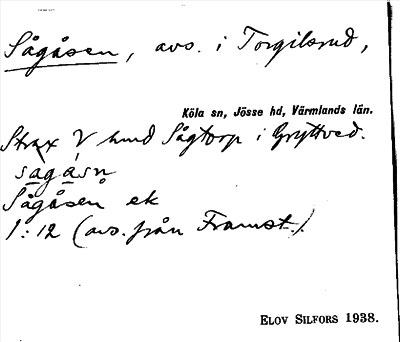 Sågåsen, avs. i Torgilsrud,
Köla sn, Jösse hd, Värmlands län.
Strax V hmd Sågtorp i Gryttved.
sagåsn
Sågåsen ek
1:12 (avs. från Framst.).
ELOV SILFORS 1938.